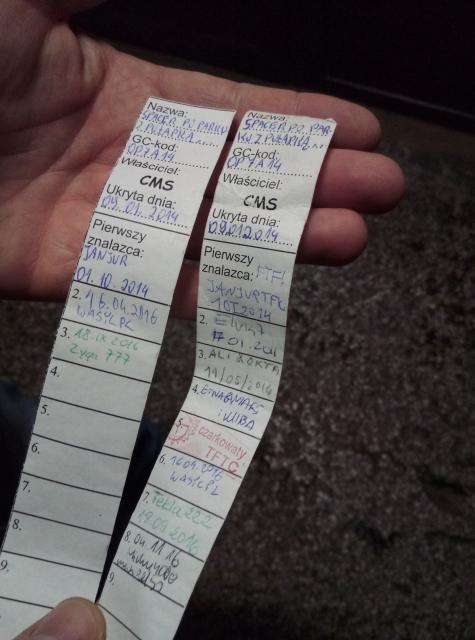 Nazwa:
SPACER PO PARKU
Z PUŁAPKĄ....
GC-kod:
OP7A14
Właściciel:
CMS
Ukryta dnia:
09.01.2014
Pierwszy
znalazca:
JANJUR
01.10.2014
2. 16.04.2016
WASYLPL
3. 18-IX 2016
Zyga 777
4.
5.
6.
7.
8.
9.
Nazwa:
SPACER PO PAR-
KU Z PUŁAPKĄ....
GC-kod:
OP7A14
Właściciel:
CMS
Ukryta dnia:
09.01.2014
Pierwszy
znalazca: FTF!
JANJUR TFTC
2014
2.
01.
3. ALI &
19/05/2014
4.
5. czarkowaty
TFTC
6. 2016
WASYLPL
7. Tekla222
19.09.2016
8. 04 11 16
9.